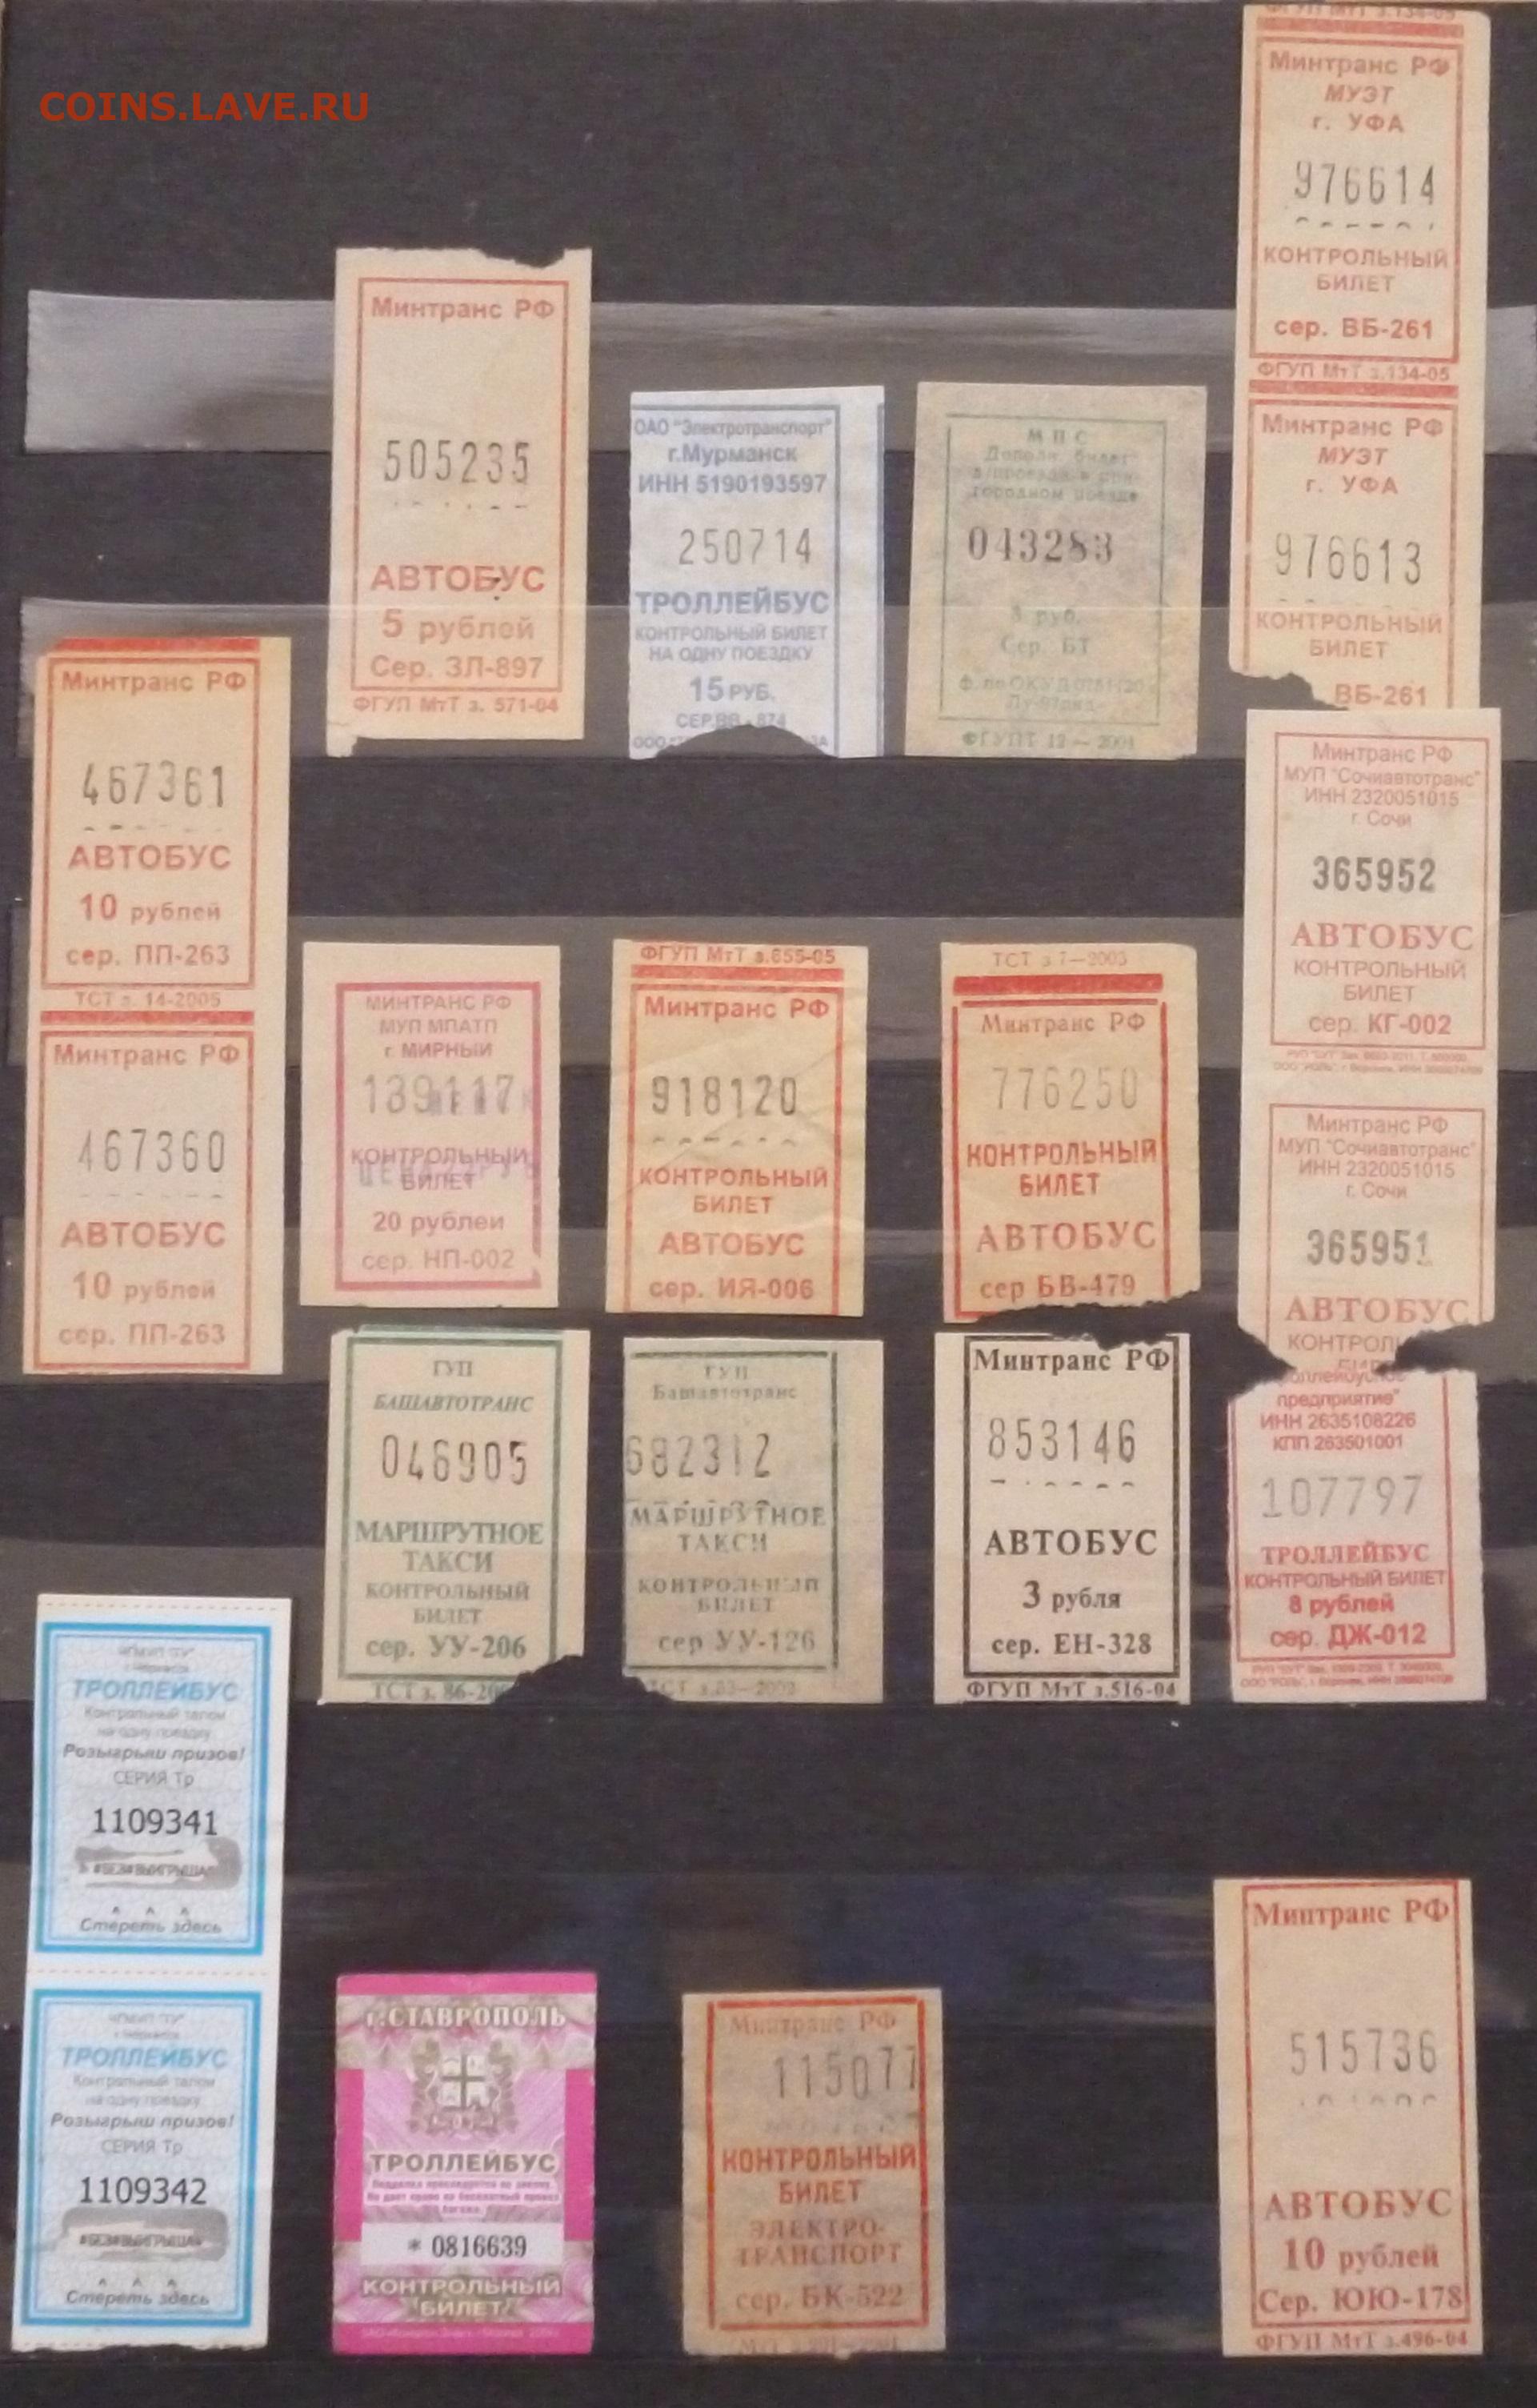 COINS.LAVE.RU
Минтранс РФ
МУЭТ
г. УФА
976614
КОНТРОЛЬНЫЙ
БИЛЕТ
сер. ВБ-261
ФГУП МтТ з.134-05
Минтранс РФ
МУЭТ
г. УФА
976613
КОНТРОЛЬНЫЙ
БИЛЕТ
ВБ-261
Минтранс РФ
505235
АВТОБУС
5 рублей
Сер. ЗЛ-897
ФГУП МтТ з. 571-04
ОАО "Электротранспорт"
г.Мурманск
ИНН 5190193597
250714
ТРОЛЛЕЙБУС
КОНТРОЛЬНЫЙ БИЛЕТ
НА ОДНУ ПОЕЗДКУ
15 РУБ.
СЕР.ВВ - 874
МПС
043283
руб.
Сер. БТ
Минтранс РФ
467361
АВТОБУС
10 рублей
сер. ПП-263
ТСТ з. 14-2005
Минтранс РФ
467360
АВТОБУС
10 рублей
сер. ПП-263
МИНТРАНС РФ
МУП МПАТП
г. МИРНЫЙ
139117
КОНТРОЛЬНЫЙ
БИЛЕТ
20 рублей
сер. НП-002
ФГУП МтТ з.655-05
Минтранс РФ
918120
КОНТРОЛЬНЫЙ
БИЛЕТ
АВТОБУС
сер. ИЯ-006
ТСТ з 7—2003
Минтранс РФ
776250
КОНТРОЛЬНЫЙ
БИЛЕТ
АВТОБУС
сер БВ-479
Минтранс РФ
МУП "Сочиавтотранс"
ИНН 2320051015
г. Сочи
365952
АВТОБУС
КОНТРОЛЬНЫЙ
БИЛЕТ
сер. КГ-002
Минтранс РФ
МУП "Сочиавтотранс"
ИНН 2320051015
г. Сочи
365951
АВТОБУС
ГУП
БАШАВТОТРАНС
046905
МАРШРУТНОЕ
ТАКСИ
КОНТРОЛЬНЫЙ
БИЛЕТ
сер. УУ-206
ТСТ з. 86-20
ГУП
Башавтотранс
682312
МАРШРУТНОЕ
ТАКСИ
КОНТРОЛЬНЫЙ
БИЛЕТ
сер УУ-126
Минтранс РФ
853146
АВТОБУС
3 рубля
сер. ЕН-328
ФГУП МтТ з.516-04
предприятие"
ИНН 2635108226
КПП 263501001
107797
ТРОЛЛЕЙБУС
КОНТРОЛЬНЫЙ БИЛЕТ
8 рублей
сер. ДЖ-012
ТРОЛЛЕЙБУС
Контрольный талон
на одну поездку
Розыгрыш призов!
СЕРИЯ Тр
1109341
Стереть здесь
ТРОЛЛЕЙБУС
Контрольный талон
на одну поездку
Розыгрыш призов!
СЕРИЯ Тр
1109342
Стереть здесь
г.СТАВРОПОЛЬ
ТРОЛЛЕЙБУС
* 0816639
КОНТРОЛЬНЫЙ
БИЛЕТ
Минтранс РФ
115077
КОНТРОЛЬНЫЙ
БИЛЕТ
ЭЛЕКТРО-
ТРАНСПОРТ
сер. БК-522
Минтранс РФ
515736
АВТОБУС
10 рублей
Сер. ЮЮ-178
ФГУП МтТ з.496-04